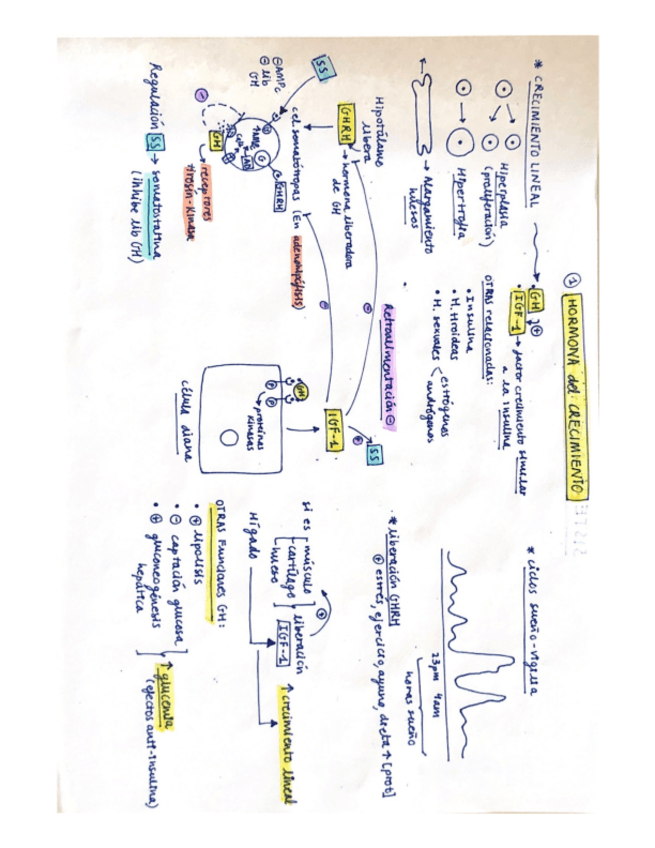 ① HORMONA del CRECIMIENTO
* CRECIMIENTO LINEAL
Hiperplasia
(proliferación)
Hipertrofia
→ Alargamiento
huesos
• GH
⊕
• IGF-1 → factor crecimiento similar
a la insulina
OTRAS relacionadas:
• Insulina
• H. tiroideas
• H. sexuales
estrógenos
andrógenos
* ciclos sueño-vigilia
23pm 4am
horas sueño
* liberación GHRH
⊕ estrés, ejercicio, ayuno, dieta ↑ [prot]
Hipotálamo
libera
GHRH → hormona liberadora
de GH
SS
⊖ AMPc
⊖ lib
GH
cel. somatótropas (En adenohipófisis)
GHRH
G
GH
→ receptores
tirosin-kinasa
Regulación SS → somatostatina
(inhibe lib GH)
Retroalimentación ⊖
⊖
⊖
IGF-1
⊕
SS
GH
P
P
proteínas
kinasas
célula diana
si es
músculo
cartílago
hueso
liberación
IGF-1
⊕
Hígado
↑ crecimiento lineal
OTRAS Funciones GH:
• ⊕ lipolisis
• ⊖ captación glucosa
• ⊕ gluconeogénesis
hepática
↑ glucemia
(efectos anti-insulina)